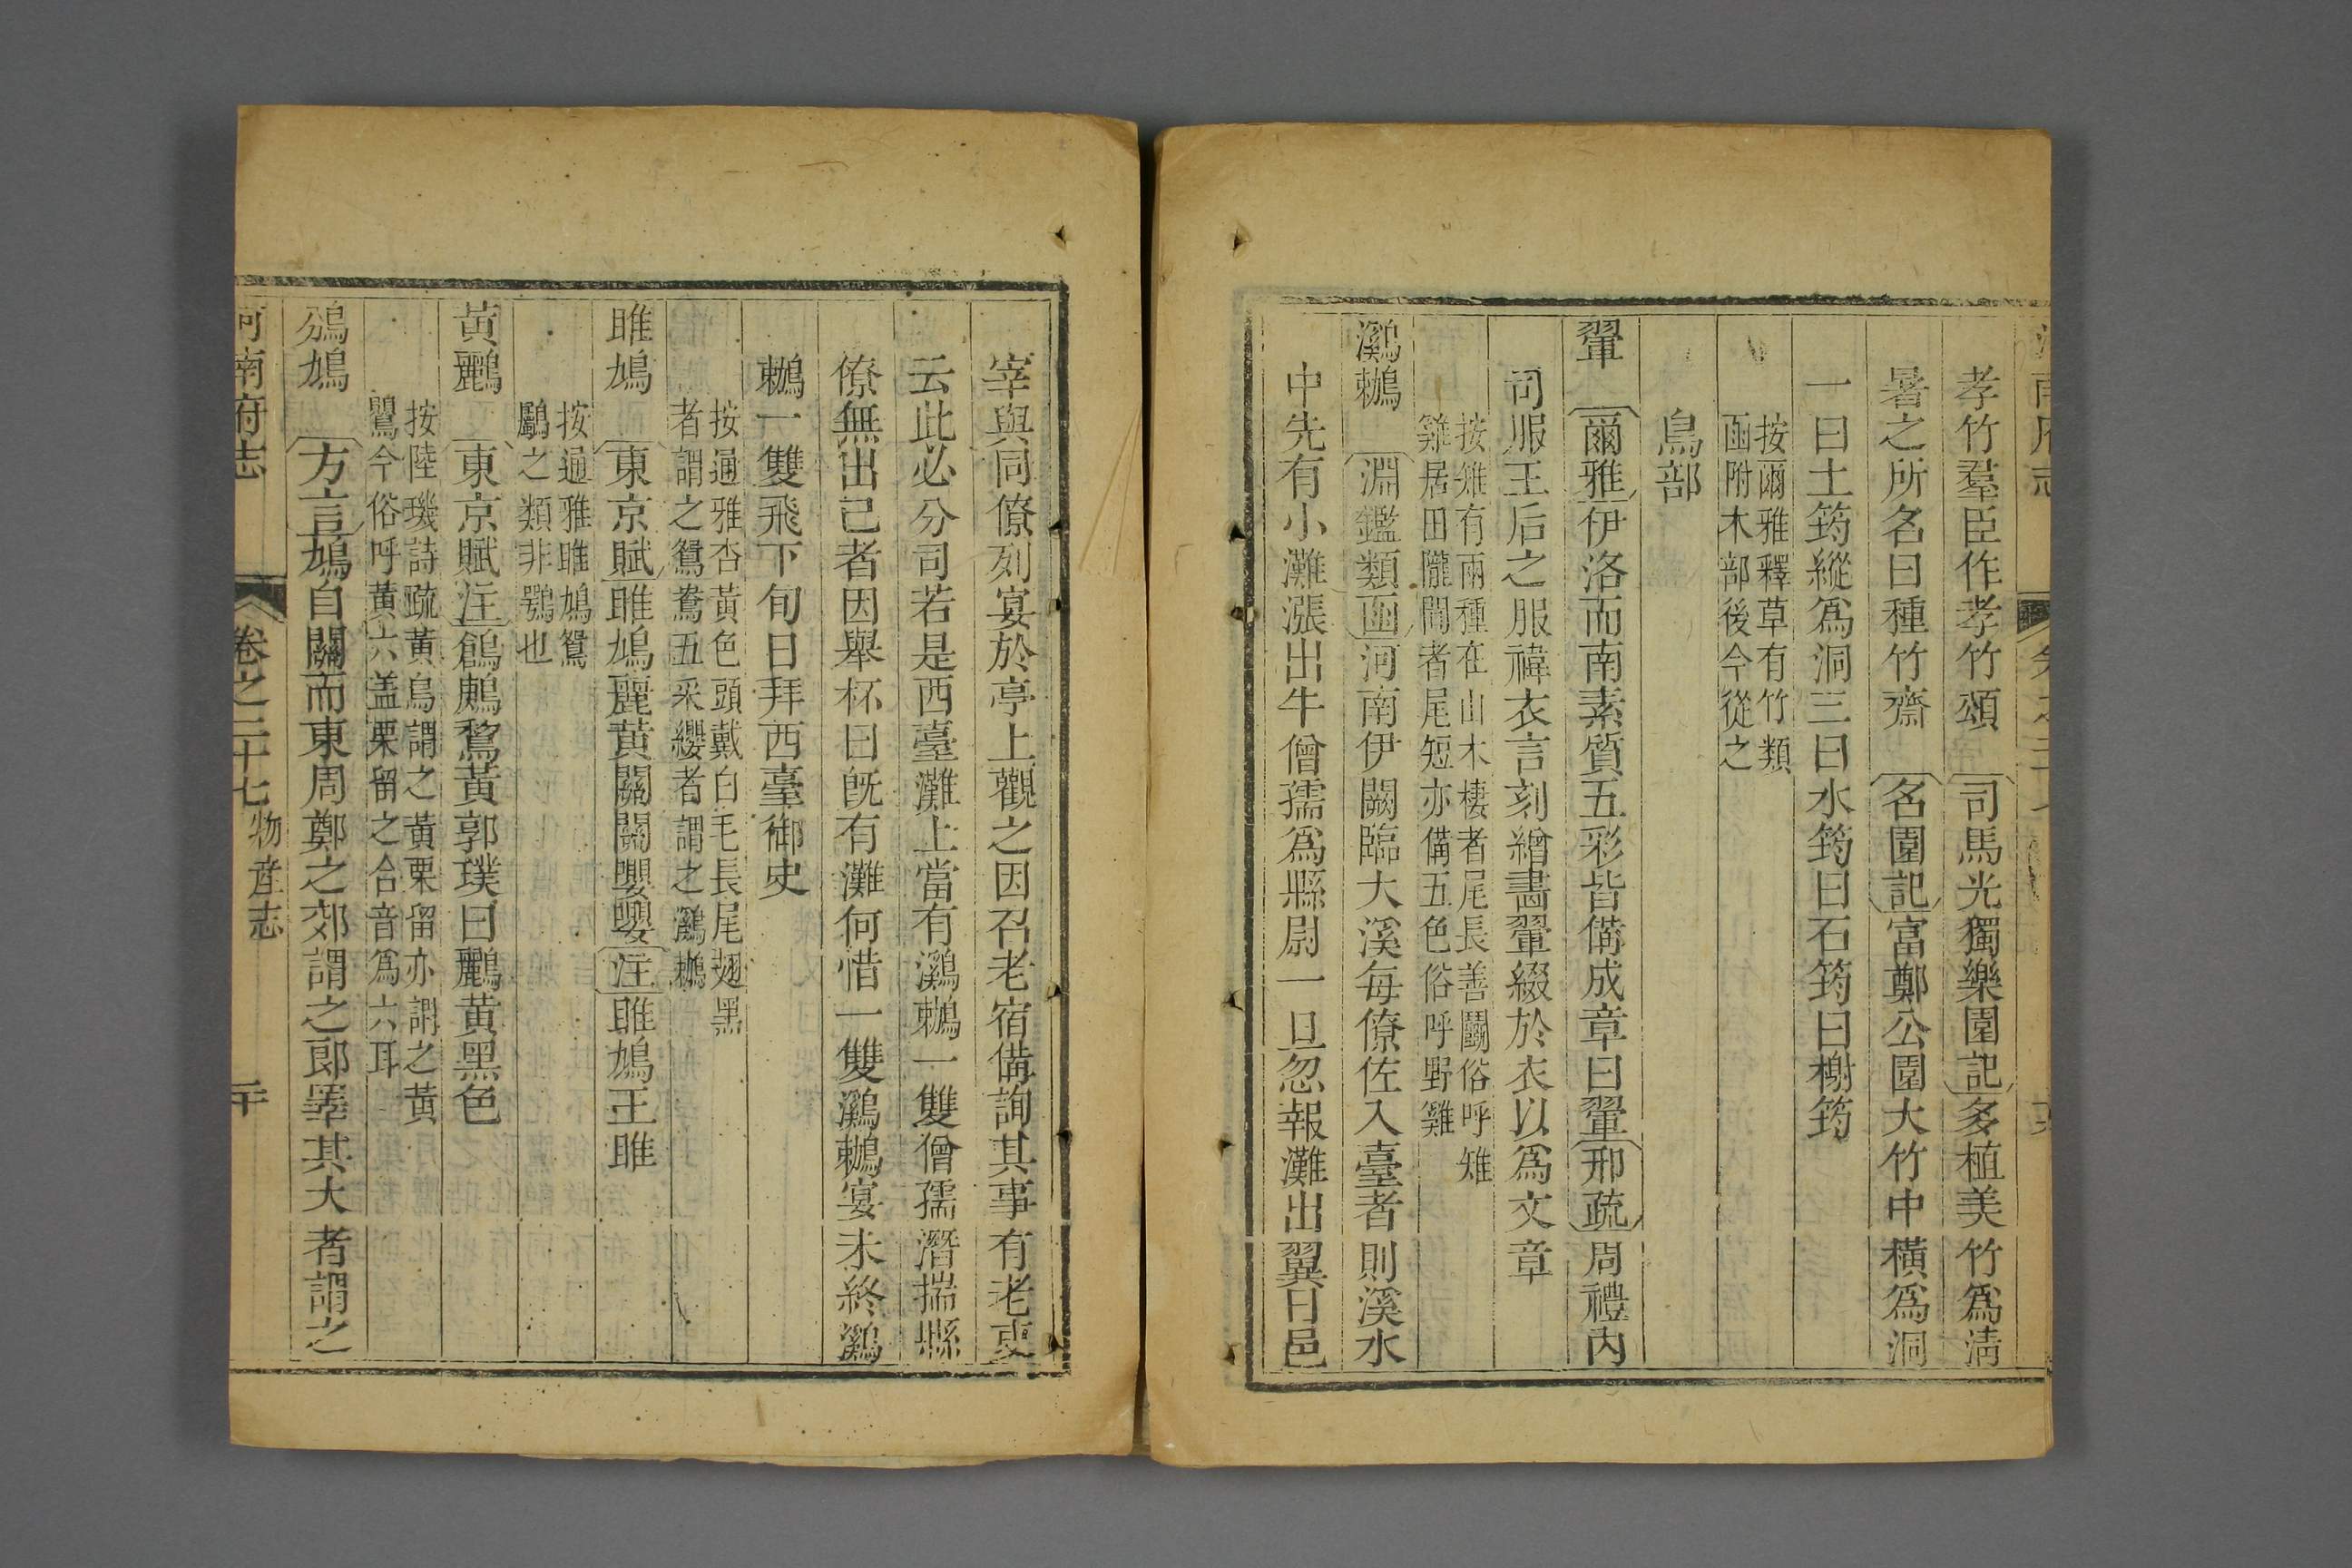 孝竹羣臣作孝竹頌　司馬光獨樂園記多植美竹爲清
暑之所名曰種竹齋　名園記富鄭公園大竹中橫爲洞
一曰土筠縱爲洞三曰水筠曰石筠曰榭筠
按爾雅釋草有竹類
函附木部後今從之
鳥部
翬　爾雅伊洛而南素質五彩皆備成章曰翬邢疏周禮內
司服王后之服褘衣言刻繒畫翬綴於衣以爲文章
按雉有兩種在山木棲者尾長善鬭俗呼雉
雞居田隴間者尾短亦備五色俗呼野雞
鸂鶒　淵鑑類函河南伊闕臨大溪每僚佐入臺者則溪水
中先有小灘漲出牛僧孺爲縣尉一旦忽報灘出翼日邑
宰與同僚列宴於亭上觀之因召老宿備詢其事有老吏
云此必分司若是西臺灘上當有鸂鶒一雙僧孺潛揣縣
僚無出己者因舉杯曰旣有灘何惜一雙鸂鶒宴未終鸂
鶒一雙飛下旬日拜西臺御史
按通雅杏黃色頭戴白毛長尾翅黑
者謂之鴛鴦五采纓者謂之鸂鶒
雎鳩　東京賦雎鳩麗黃關關嚶嚶注雎鳩王雎
按通雅雎鳩鴛
鷗之類非鶚也
黃鸝　東京賦注鶬鶊鶖黃郭璞曰鸝黃黑色
按陸璣詩疏黃鳥謂之黃栗留亦謂之黃
鸎今俗呼黃六盖栗留之合音爲六耳
鳻鳩　方言鳩自關而東周鄭之郊謂之郎睾其大者謂之
河南府志
卷之二十七
物産志
二十